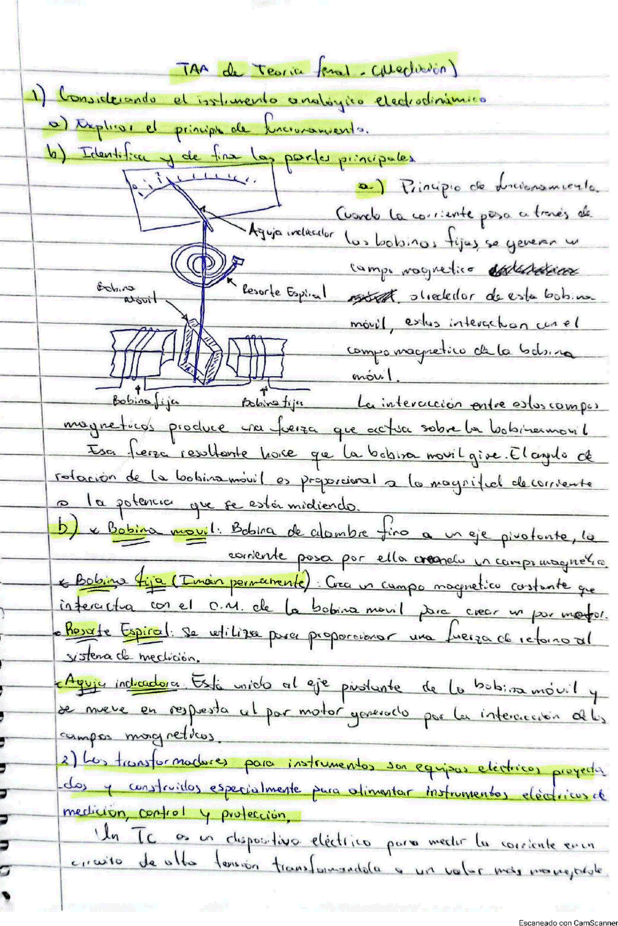 TAA de Teoria final - (Medición)
1) Considerando el instrumento analógico electrodinámico
a) Explicar el principio de funcionamiento.
b) Identifica y de fina las partes principales
a) Principio de funcionamiento.
Cuando la corriente pasa a través de
las bobinas fijas se genera un
campo magnetico
alrededor de esta bobina
móvil, estas interactuan con el
campo magnetico de la bobina
móvil.
Aguja indicador
Resorte Espiral
Bobina
móvil
Bobina fija
Bobina fija
La interacción entre estos campos
magneticos produce una fuerza que actúa sobre la bobina movil
Esa fuerza resultante hace que la bobina movil gire. El angulo de
rotación de la bobina móvil es proporcional a la magnitud de corriente
o la potencia que se está midiendo.
b) * Bobina movil: Bobina de alambre fino a un eje pivotante, la
corriente pasa por ella creando un campo magnético.
* Bobina fija (Imán permanente): Crea un campo magnetico constante que
interactua con el C.M. de la bobina movil para crear un par motor.
• Resorte Espiral: Se utiliza para proporcionar una fuerza de retorno al
sistema de medición.
* Aguja indicadora: Está unido al eje pivotante de la bobina móvil y
se mueve en respuesta al par motor generado por la interacción de los
campos magneticos.
2) Los transformadores para instrumentos son equipos eléctricos proyecta
dos y construidos especialmente para alimentar instrumentos eléctricos de
medición, control y protección,
Un TC es un dispositivo eléctrico para medir la corriente en un
circuito de alta tensión transformandola a un valor más manejable
Escaneado con CamScanner